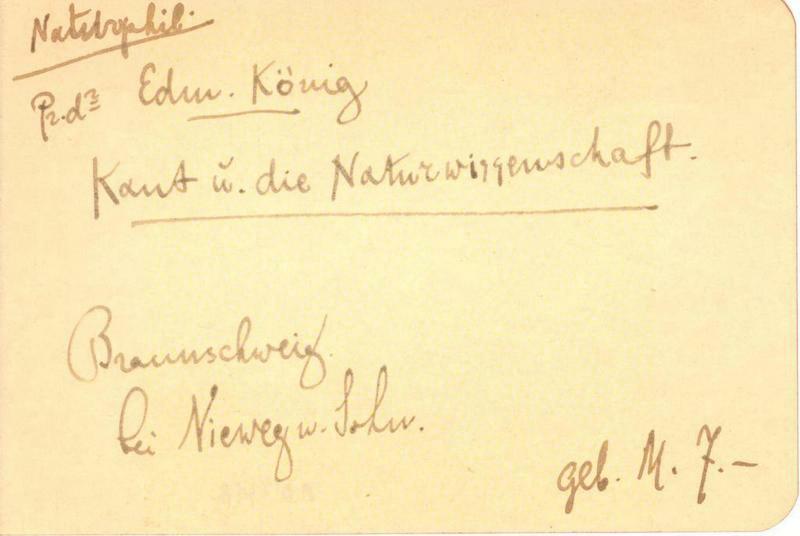 Naturphil.
Pr. dr Edm. König
Kant u. die Naturwissenschaft.
Braunschweig.
bei Vieweg u. Sohn.
geb. M. 7.–